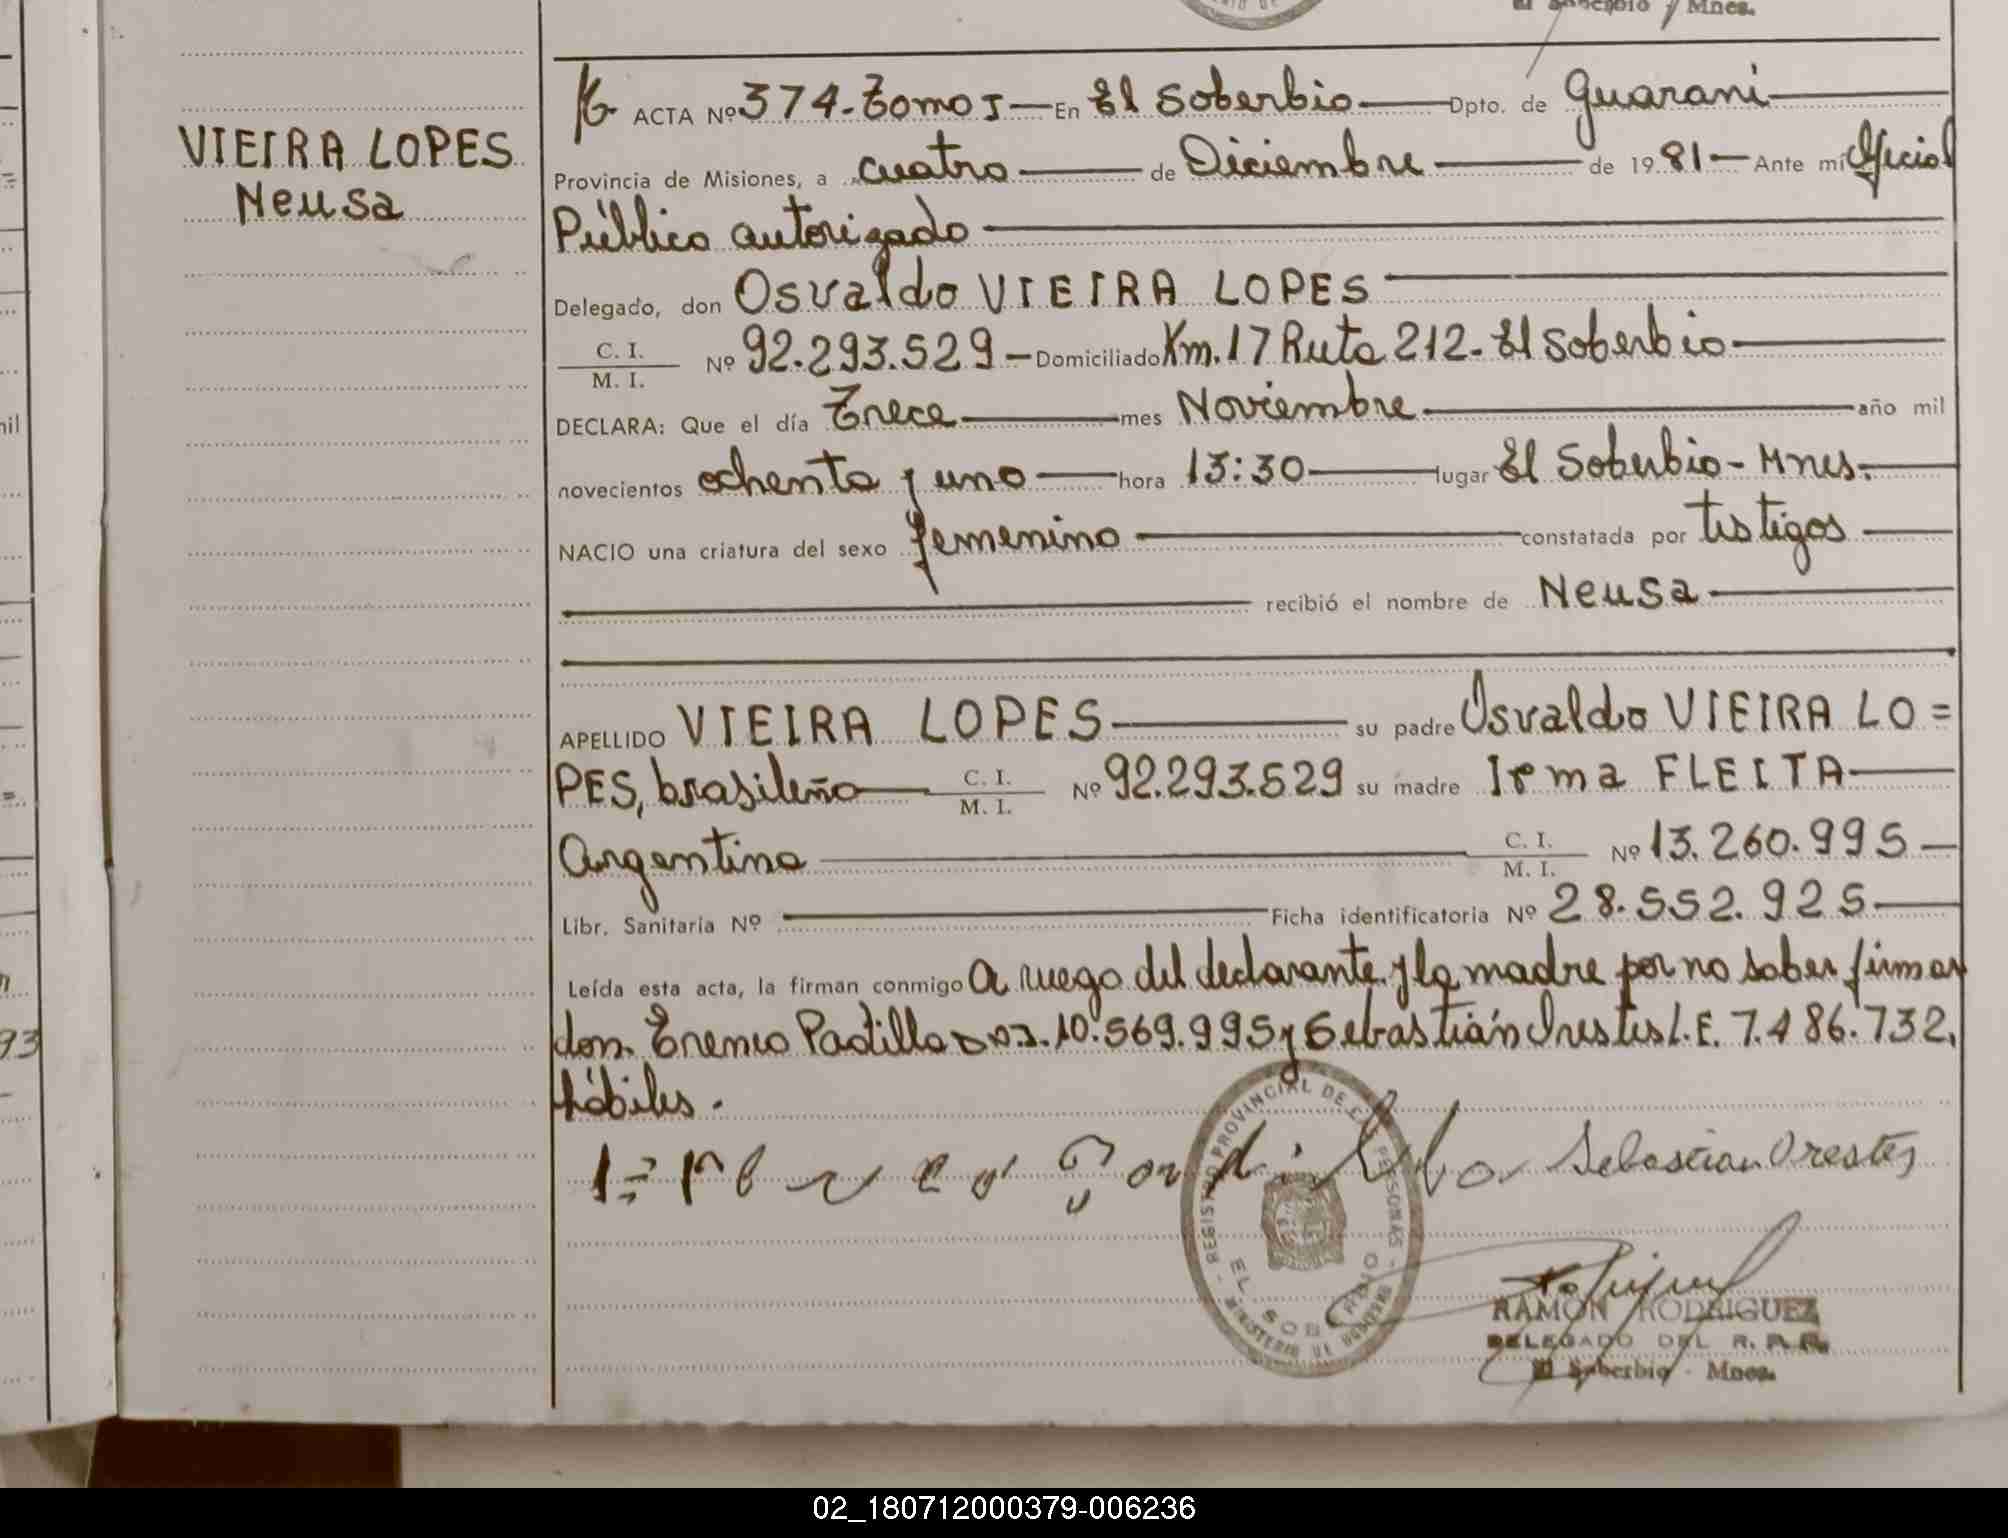 El Soberbio Mnes.
VIEIRA LOPES
Neusa
ACTA Nº 374-Tomo I — En El Soberbio — Dpto. de Guarani —
Provincia de Misiones, a cuatro — de Diciembre — de 1981 — Ante mí Oficial
Público autorizado —
Delegado, don Osvaldo VIEIRA LOPES —
C. I.
M. I. Nº 92.293.529 — Domiciliado Km. 17 Ruta 212 - El Soberbio —
DECLARA: Que el día Trece — mes Noviembre — año mil
novecientos ochenta y uno — hora 13:30 — lugar El Soberbio - Mnes. —
NACIO una criatura del sexo femenino — constatada por testigos —
recibió el nombre de Neusa —
APELLIDO VIEIRA LOPES — su padre Osvaldo VIEIRA LO=
PES, brasileño — C. I. M. I. Nº 92.293.529 su madre Irma FLEITA —
Argentina — C. I. M. I. Nº 13.260.995 —
Libr. Sanitaria Nº — Ficha identificatoria Nº 28.552.925 —
Leída esta acta, la firman conmigo A ruego del declarante y la madre por no saber firmar
don. Padilla 10.569.995 y Sebastián Orestes L.E. 7.486.732,
hábiles.
Sebastian Orestes
REGISTRO PROVINCIAL DE LAS PERSONAS
EL SOBERBIO
MINISTERIO DE GOBIERNO
RAMON RODRIGUEZ
DELEGADO DEL R. P. P.
El Soberbio - Mnes.
nil
93
02_180712000379-006236